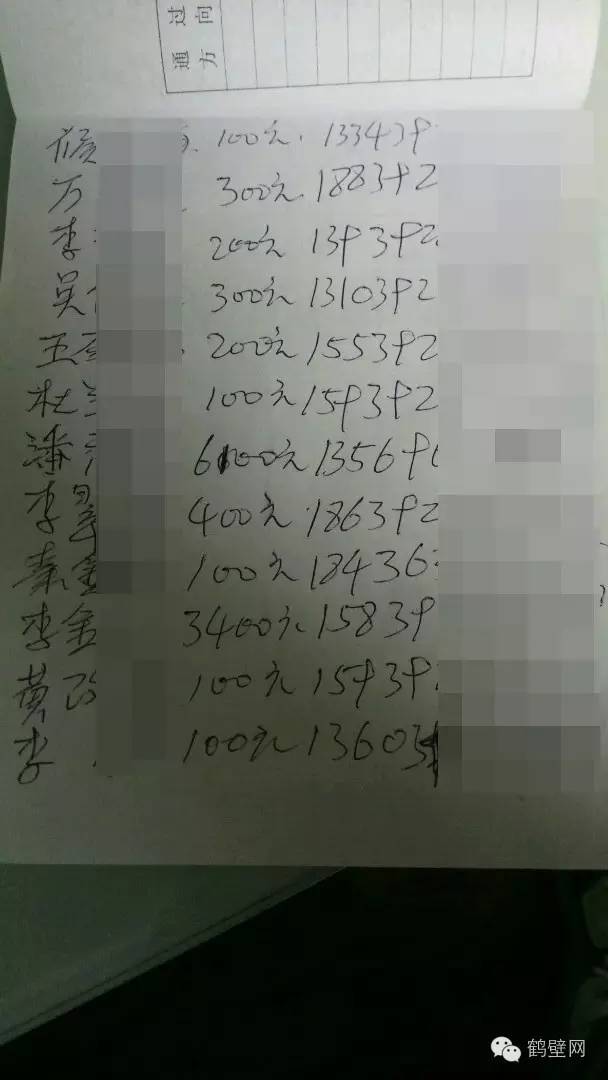 通过
方向
100元. 133439
万 300元. 188392
李 200元 139392
吴 300元 1310392
王 200元 155392
杜 100元 159392
潘 6100元 13569
李 400元 186392
秦金 100元 18436
李金 3400元 15839
黄改 100元 15939
李 100元 13603
鹤壁网